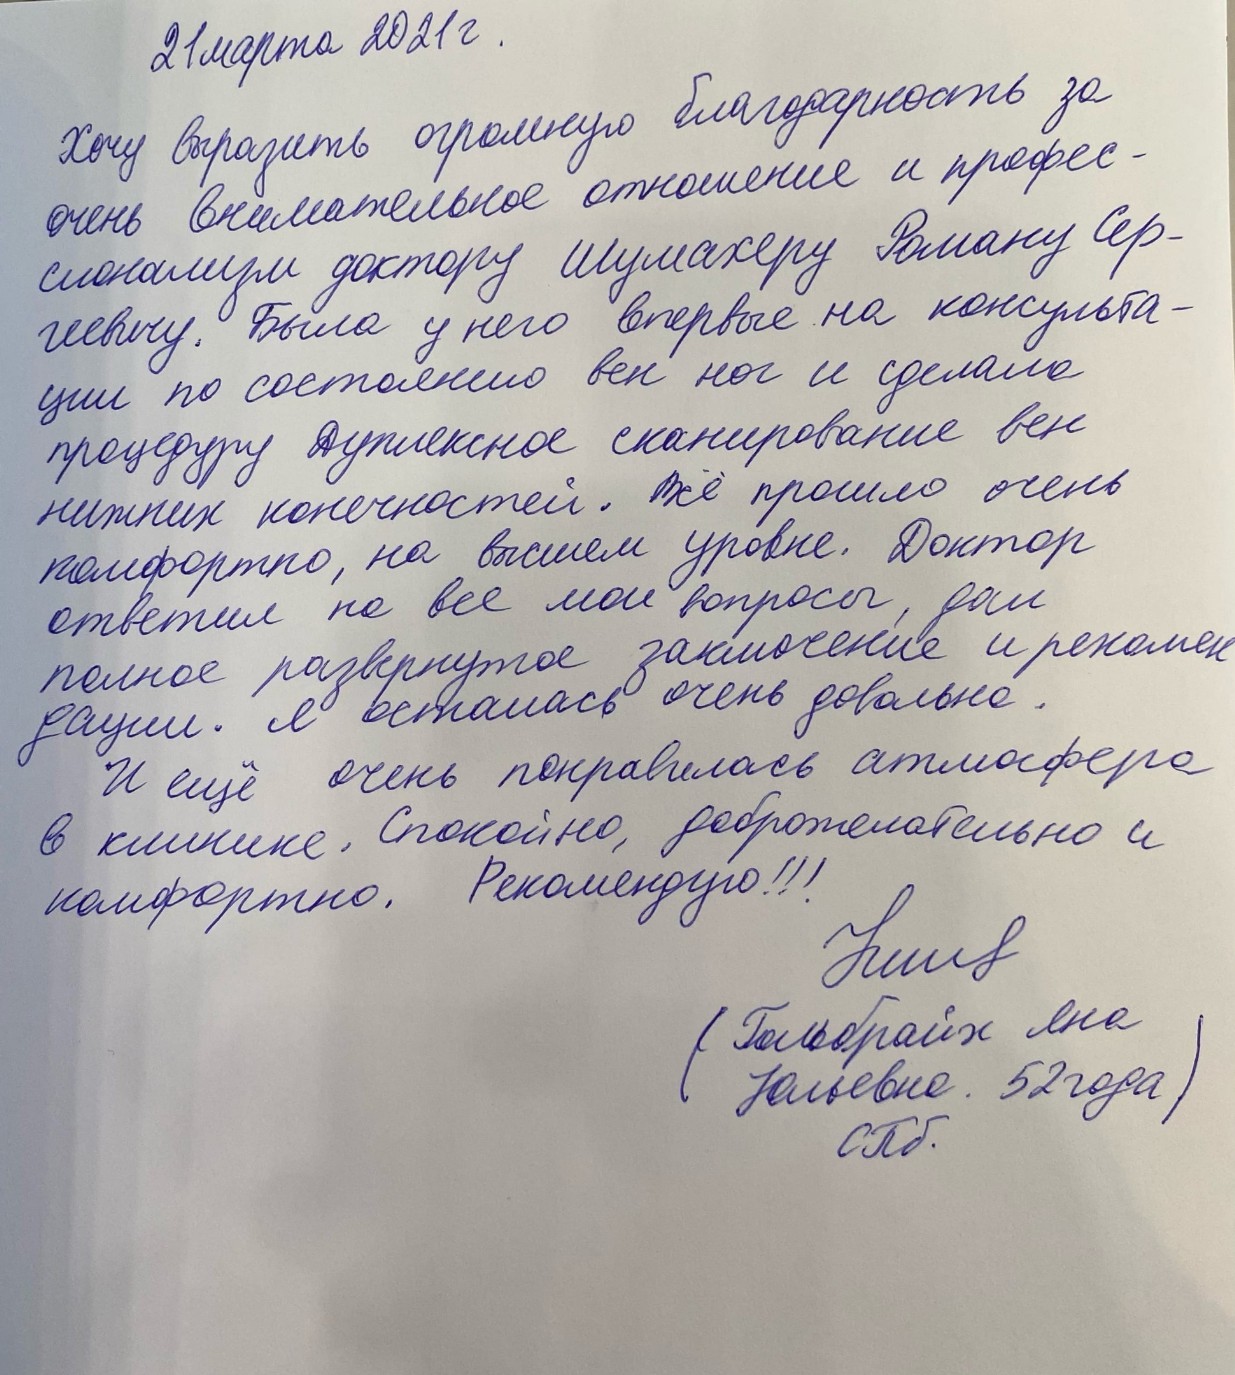 21 марта 2021 г.
Хочу выразить огромную благодарность за
очень внимательное отношение и профес-
сионализм доктору Шумахеру Роману Сер-
геевичу. Была у него впервые на консульта-
ции по состоянию вен ног и сделала
процедуру Дуплексное сканирование вен
нижних конечностей. Всё прошло очень
комфортно, на высшем уровне. Доктор
ответил на все мои вопросы, дал
полное развернутое заключение и рекомен
дации. Я осталась очень довольна.
И ещё очень понравилась атмосфера
в клинике. Спокойно, доброжелательно и
комфортно. Рекомендую!!!
(Гольбрайх Яна
Юльевна. 52 года)
СПб.